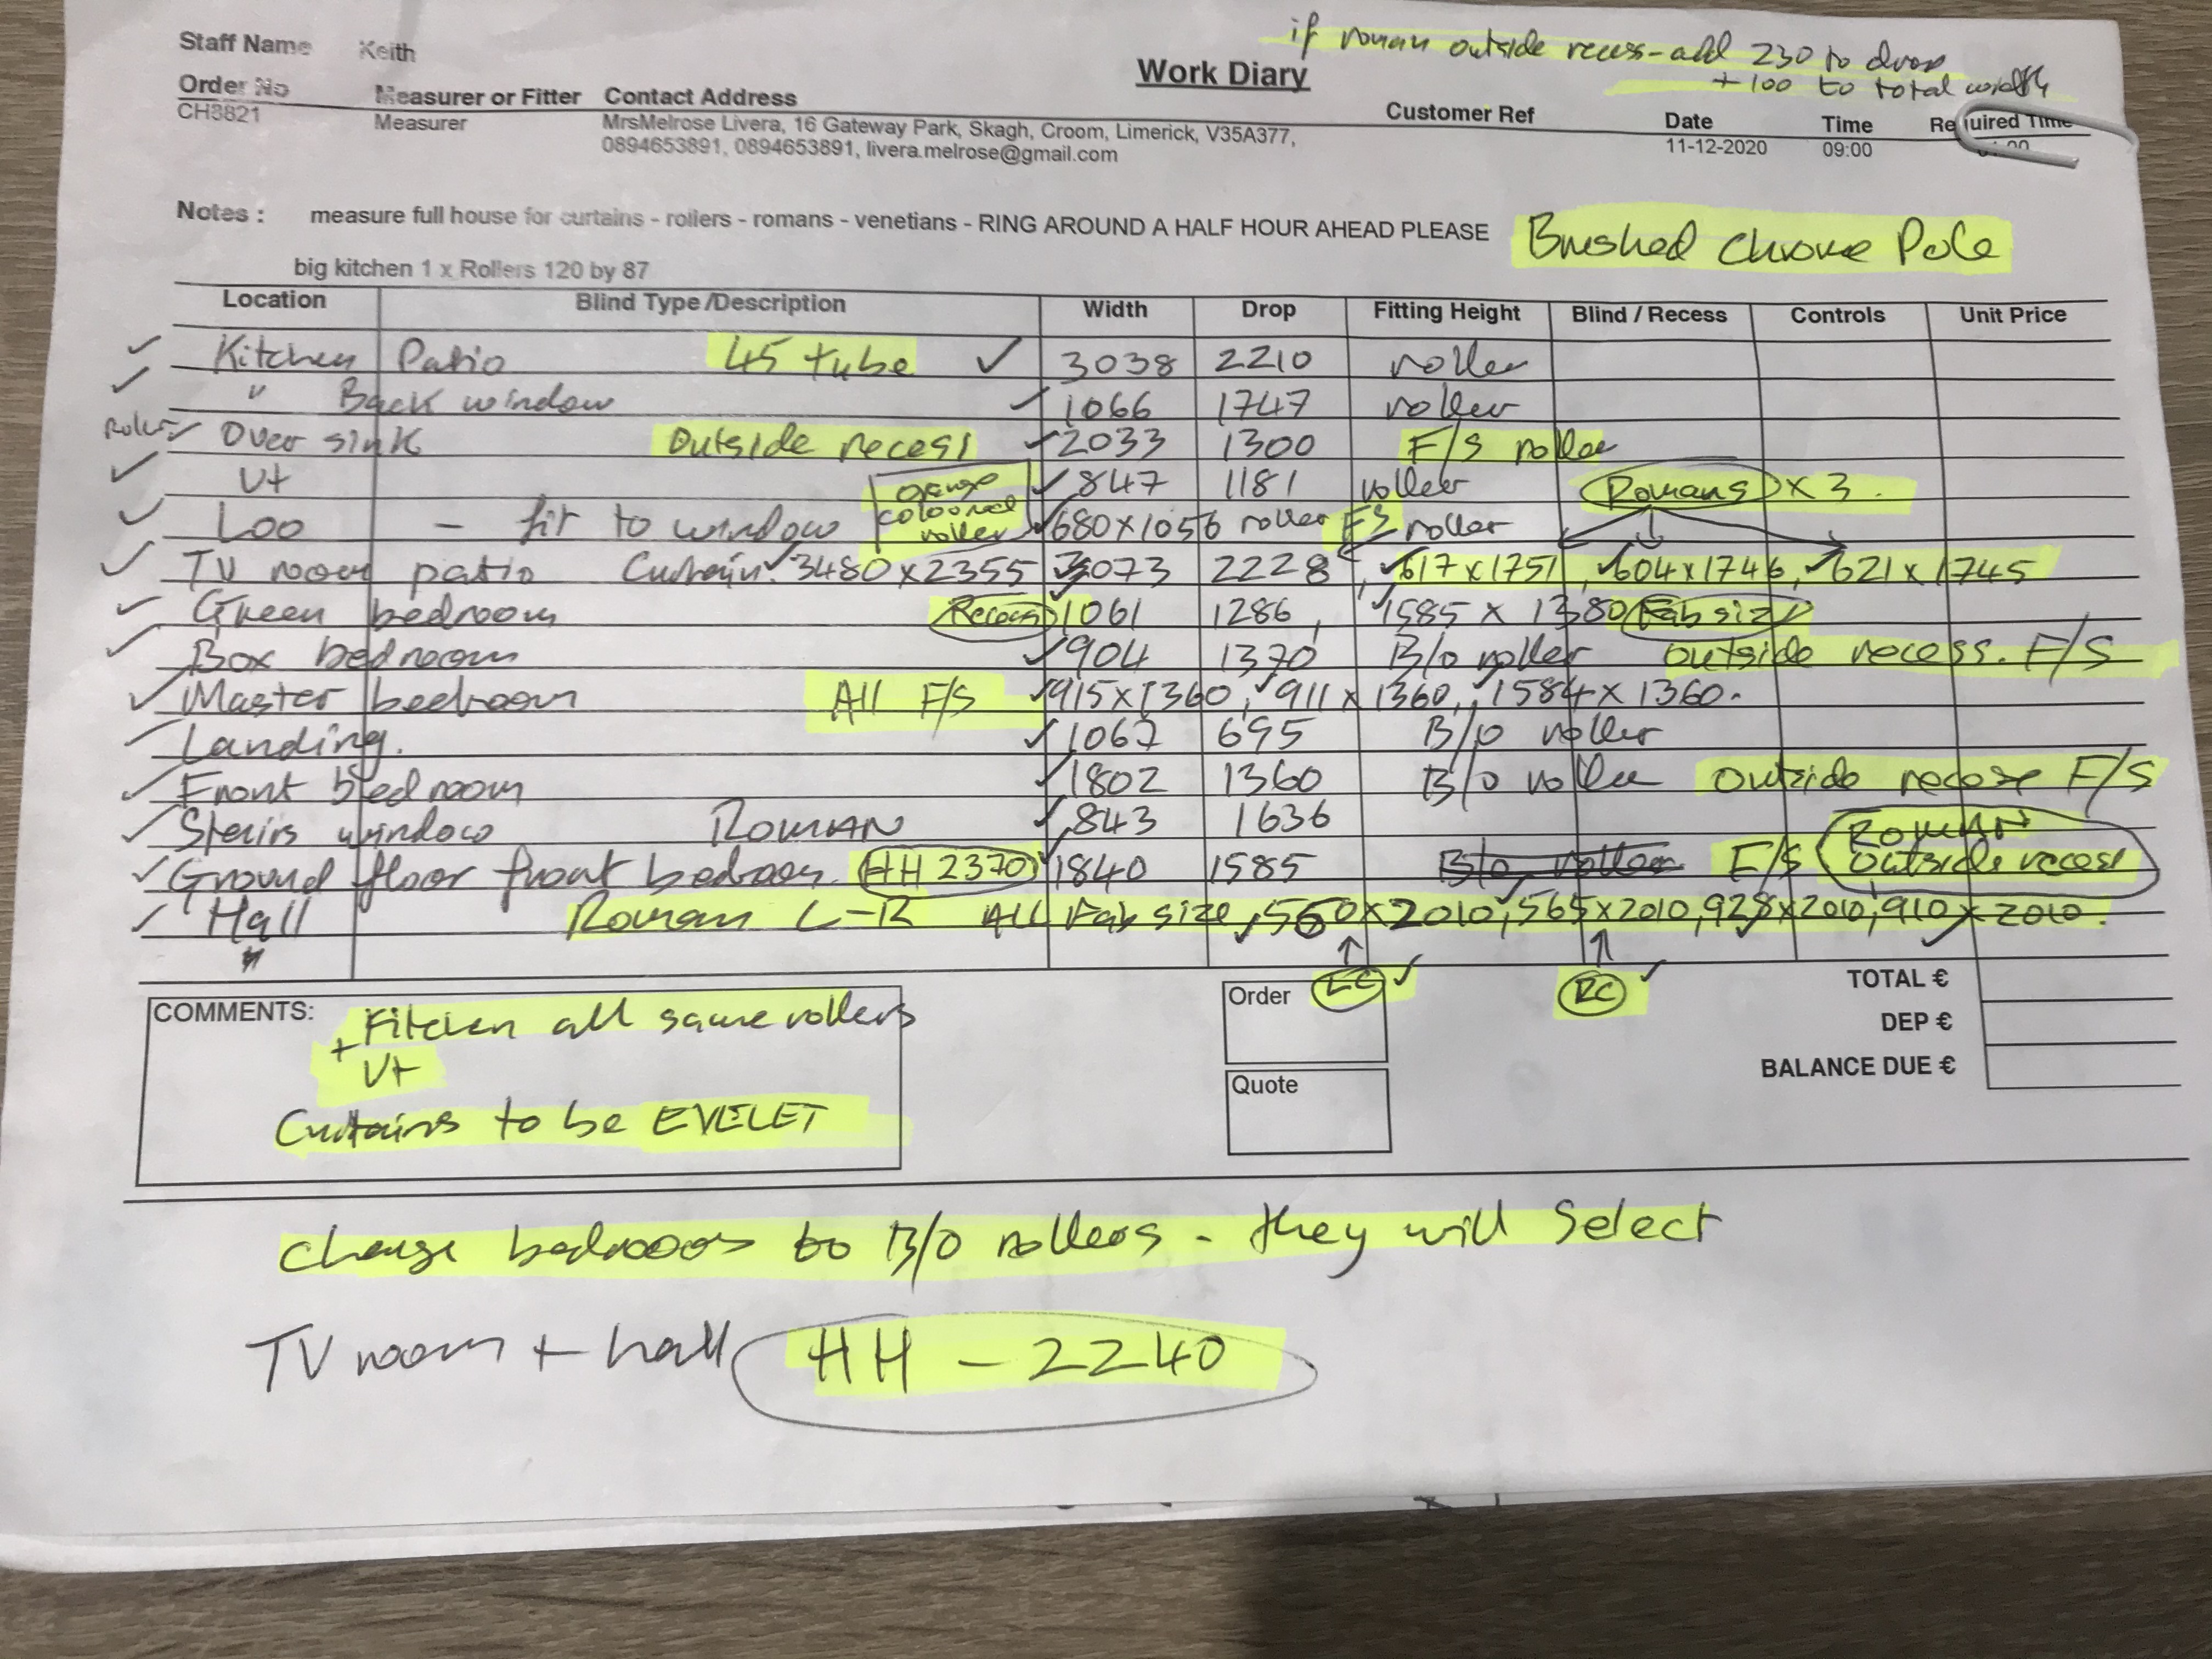 if roman outside recess - add 230 to drop
+ 100 to total width
Staff Name Keith
Work Diary
Order No Measurer or Fitter Contact Address Customer Ref Date Time Required Time
CH3821 Measurer MrsMelrose Livera, 16 Gateway Park, Skagh, Croom, Limerick, V35A377, 11-12-2020 09:00
0894653891, 0894653891, livera.melrose@gmail.com
Notes : measure full house for curtains - rollers - romans - venetians - RING AROUND A HALF HOUR AHEAD PLEASE Brushed Chrome Pole
big kitchen 1 x Rollers 120 by 87
Location Blind Type /Description Width Drop Fitting Height Blind / Recess Controls Unit Price
✓ Kitchen Patio 45 tube ✓ 3038 2210 roller
✓ " Back window ✓ 1066 1747 roller
Roller ✓ Over sink Outside recess ✓ 2033 1300 F/S roller
✓ Ut ✓ 847 1181 roller Romans x 3.
✓ Loo - fit to window coloured roller ✓ 680 x 1056 roller FS roller
✓ TV room patio Curtain ✓ 3480 x 2355 ✓ 3073 2228, ✓ 617 x 1751, ✓ 604 x 1746, ✓ 621 x 1745
✓ Green bedroom Recess ✓ 1061 1286, ✓ 1585 x 1380 Fab size
✓ Box bedroom ✓ 904 1370 B/o roller outside recess. F/S
✓ Master bedroom All F/S ✓ 915 x 1360, ✓ 911 x 1360, ✓ 1584 x 1360.
✓ Landing. ✓ 1067 695 B/o roller
✓ Front bedroom ✓ 1802 1360 B/o roller outside recess F/S
✓ Stairs window ROMAN ✓ 843 1636
✓ Ground floor front bedroom. HH 2370 ✓ 1840 1585 B/o roller F/S ROMAN outside recess
✓ Hall Roman L-R All Fab size, ✓ 560 x 2010, ✓ 565 x 2010, 928 x 2010, 910 x 2010.
LC ✓ RC ✓
COMMENTS: Kitchen all same rollers
+ Ut
Curtains to be EYELET
Order
Quote
TOTAL €
DEP €
BALANCE DUE €
change bedrooms to B/O rollers - they will select
TV room + hall HH - 2240